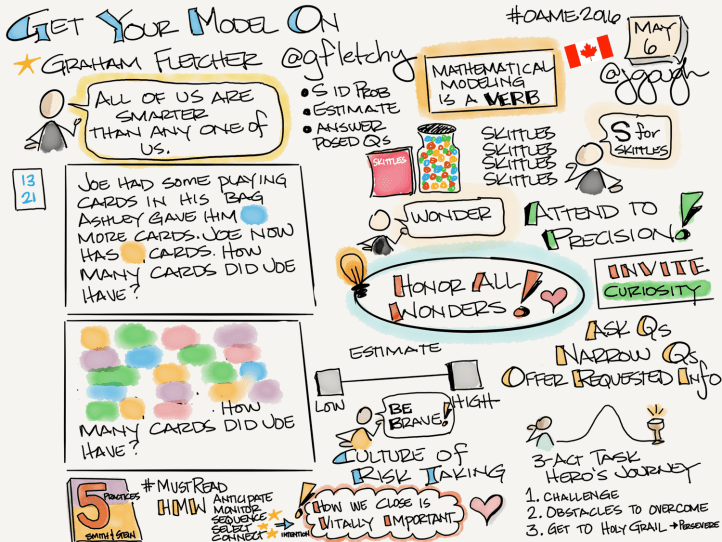 Get Your Model On
Graham Fletcher @gfletchy
#OAME2016
MAY
6
@jgough
All of us are
smarter
than any one of
us.
• S ID Prob
• Estimate
• Answer
Posed Qs
Mathematical
Modeling
is a VERB
Skittles
Skittles
Skittles
Skittles
Skittles
S for
Skittles
13
21
Joe had some playing
cards in his bag
Ashley gave him
more cards. Joe now
has cards. How
many cards did Joe
have?
Wonder
Attend to
Precision!
Honor All
Wonders!
Invite
Curiosity
Ask Qs
Narrow Qs
Offer Requested Info
How
many cards did Joe
have?
Estimate
Low
High
Be
Brave!
Culture of
Risk Taking
3-Act Task
Hero's Journey
1. Challenge
2. Obstacles to overcome
3. Get to Holy Grail → Persevere
5
Practices
Smith & Stein
#MustRead
HMW
Anticipate
Monitor
Sequence
Select
Connect
Intention
! How we close is
Vitally Important.